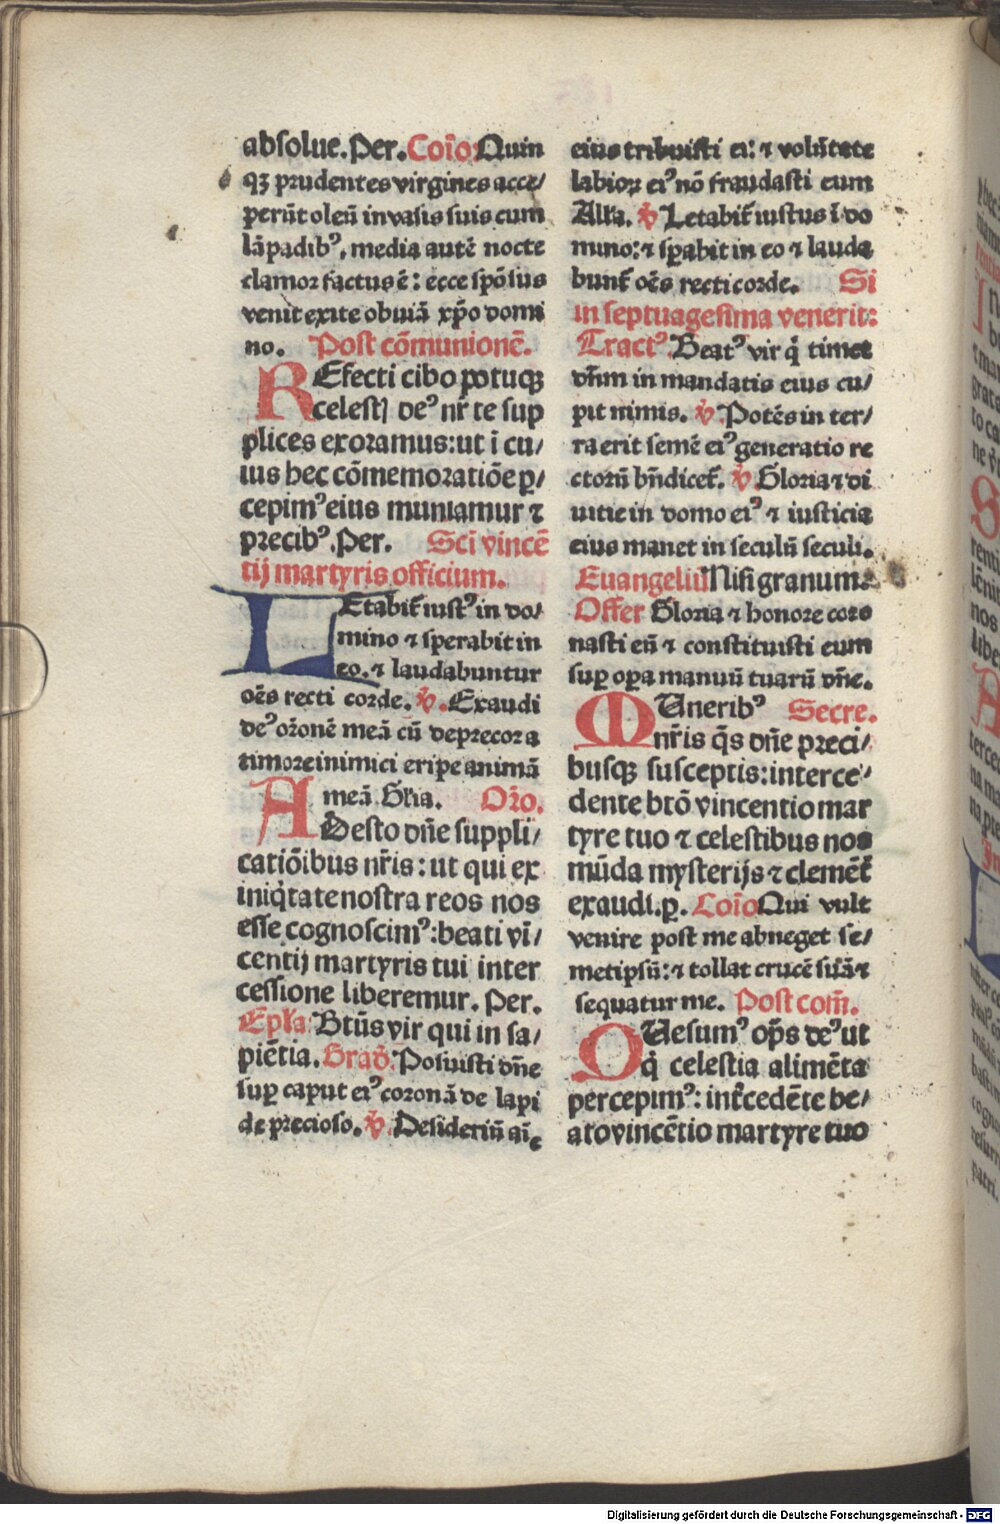 absolue. Per. Coĩo Quin
qꝫ prudentes virgines acce/
perũt oleũ in vasis suis cum
lãpadib⁹, media autẽ nocte
clamor factus ẽ: ecce spõsus
venit exite obuiã xp̃o domi
no. Post cõmunionẽ.
REfecti cibo potuqꝫ
celesti de⁹ nr̃ te sup
plices exoramus: ut ĩ cu/
ius hec cõmemoratiõe ꝑ/
cepim⁹ eius muniamur ⁊
precib⁹. Per. Sc̃i vincẽ
tij martyris officium.
LEtabit̃ iust⁹ in do/
mino ⁊ sperabit in
eo. ⁊ laudabuntur
oẽs recti corde. ℣. Exaudi
de⁹ or̃onẽ meã cũ deprecor a
timore inimici eripe animã
meã. Gl̃ia. Or̃o.
ADesto dñe suppli/
catiõibus nr̃is: ut qui ex
iniq̃tate nostra reos nos
esse cognoscim⁹: beati vĩ/
centij martyris tui inter
cessione liberemur. Per.
Ep̃la Bt̃us vir qui in sa/
piẽtia. Grad̃. Posuisti dñe
suꝑ caput ei⁹ coronã de lapi
de precioso. ℣. Desideriũ aĩe
eius tribuisti ei: ⁊ volũtate
labioꝝ ei⁹ nõ fraudasti eum
All̃a. ℣ Letabit̃ iustus ĩ do
mino: ⁊ sꝑabit in eo ⁊ lauda
bunt̃ oẽs recti corde. Si
in septuagesima venerit:
Tract⁹ Beat⁹ vir q̃ timet
dñm in mandatis eius cu/
pit nimis. ℣ Potẽs in ter/
ra erit semẽ ei⁹ generatio re
ctorũ bñdicet̃. ℣ Gloria ⁊ di
uitie in domo ei⁹ ⁊ iusticia
eius manet in seculũ seculi.
Euangeliũ Nisi granum.
Offer Gloria ⁊ honore coro
nasti eũ ⁊ constituisti eum
suꝑ oꝑa manuũ tuarũ dñe.
MUnerib⁹ Secre.
nr̃is q̃s dñe preci/
busqꝫ susceptis: interce/
dente btõ vincentio mar
tyre tuo ⁊ celestibus nos
mũda mysterijs ⁊ clemẽt̃
exaudi. ꝑ. Coĩo Qui vult
venire post me abneget se/
metipsũ: ⁊ tollat crucẽ suã ⁊
sequatur me. Post com̃.
QUesum⁹ op̃s de⁹ ut
q̃ celestia alimẽta
percepim⁹: int̃cedẽte be/
ato vincẽtio martyre tuo
Digitalisierung gefördert durch die Deutsche Forschungsgemeinschaft - DFG